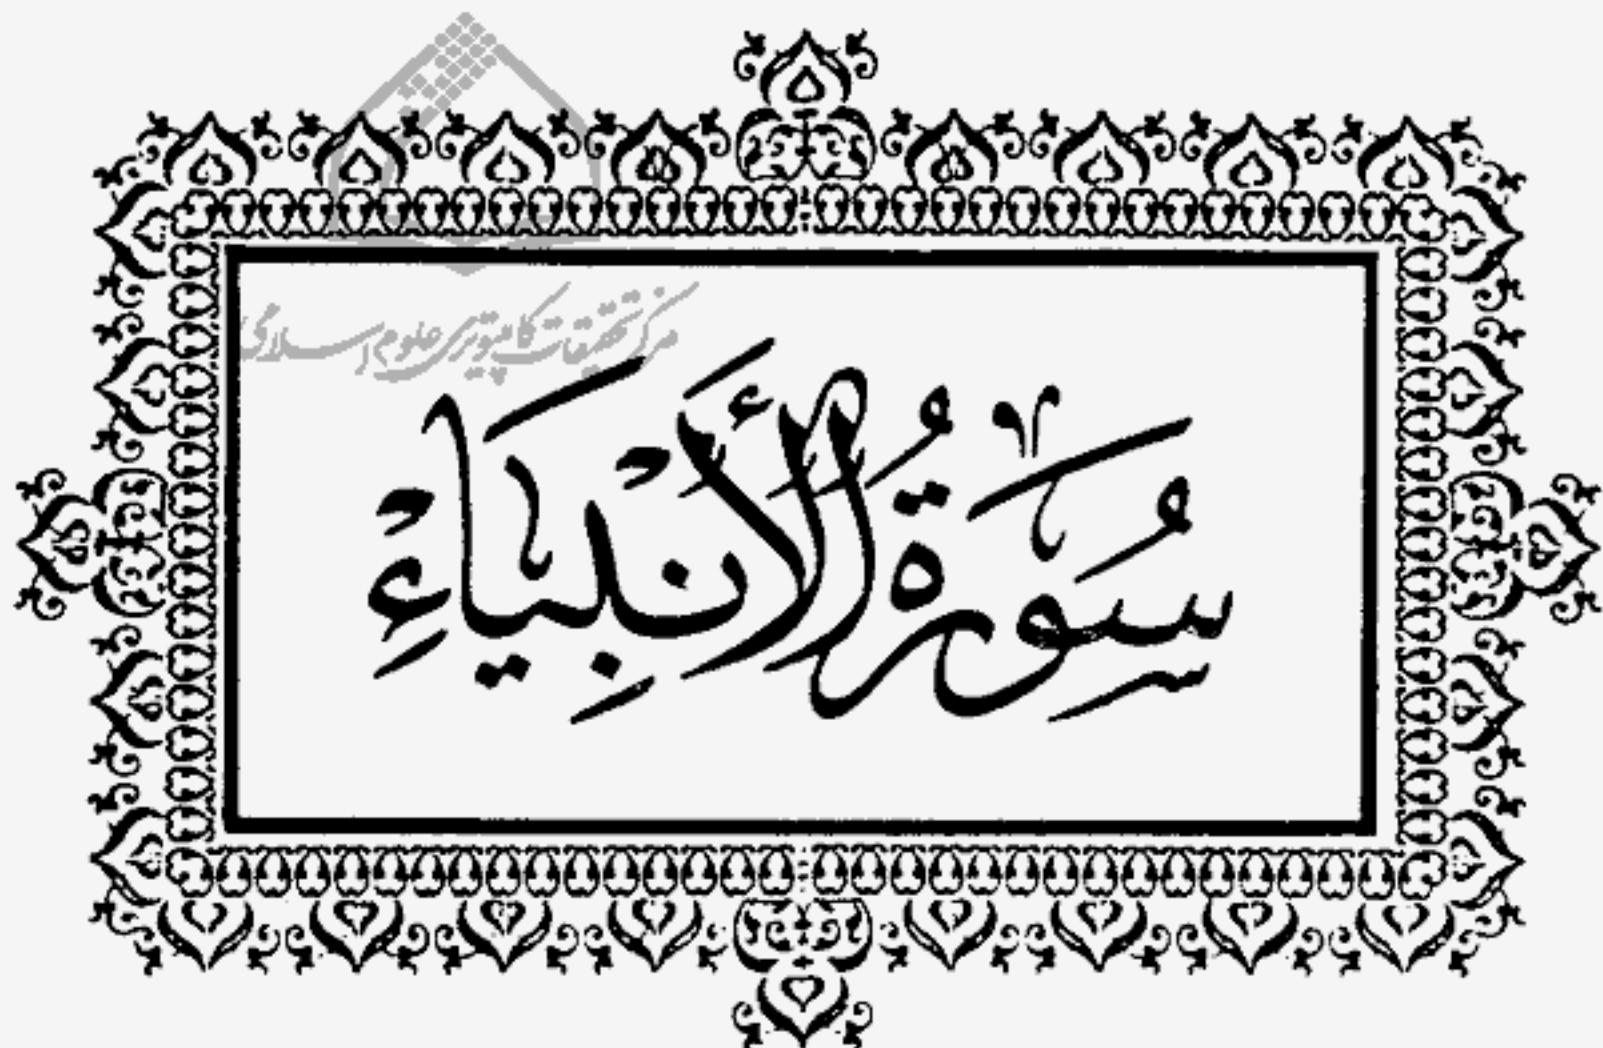 مرکز تحقیقات کامپیوتری علوم اسلامی
سُورَةُ الأَنْبِيَاءِ